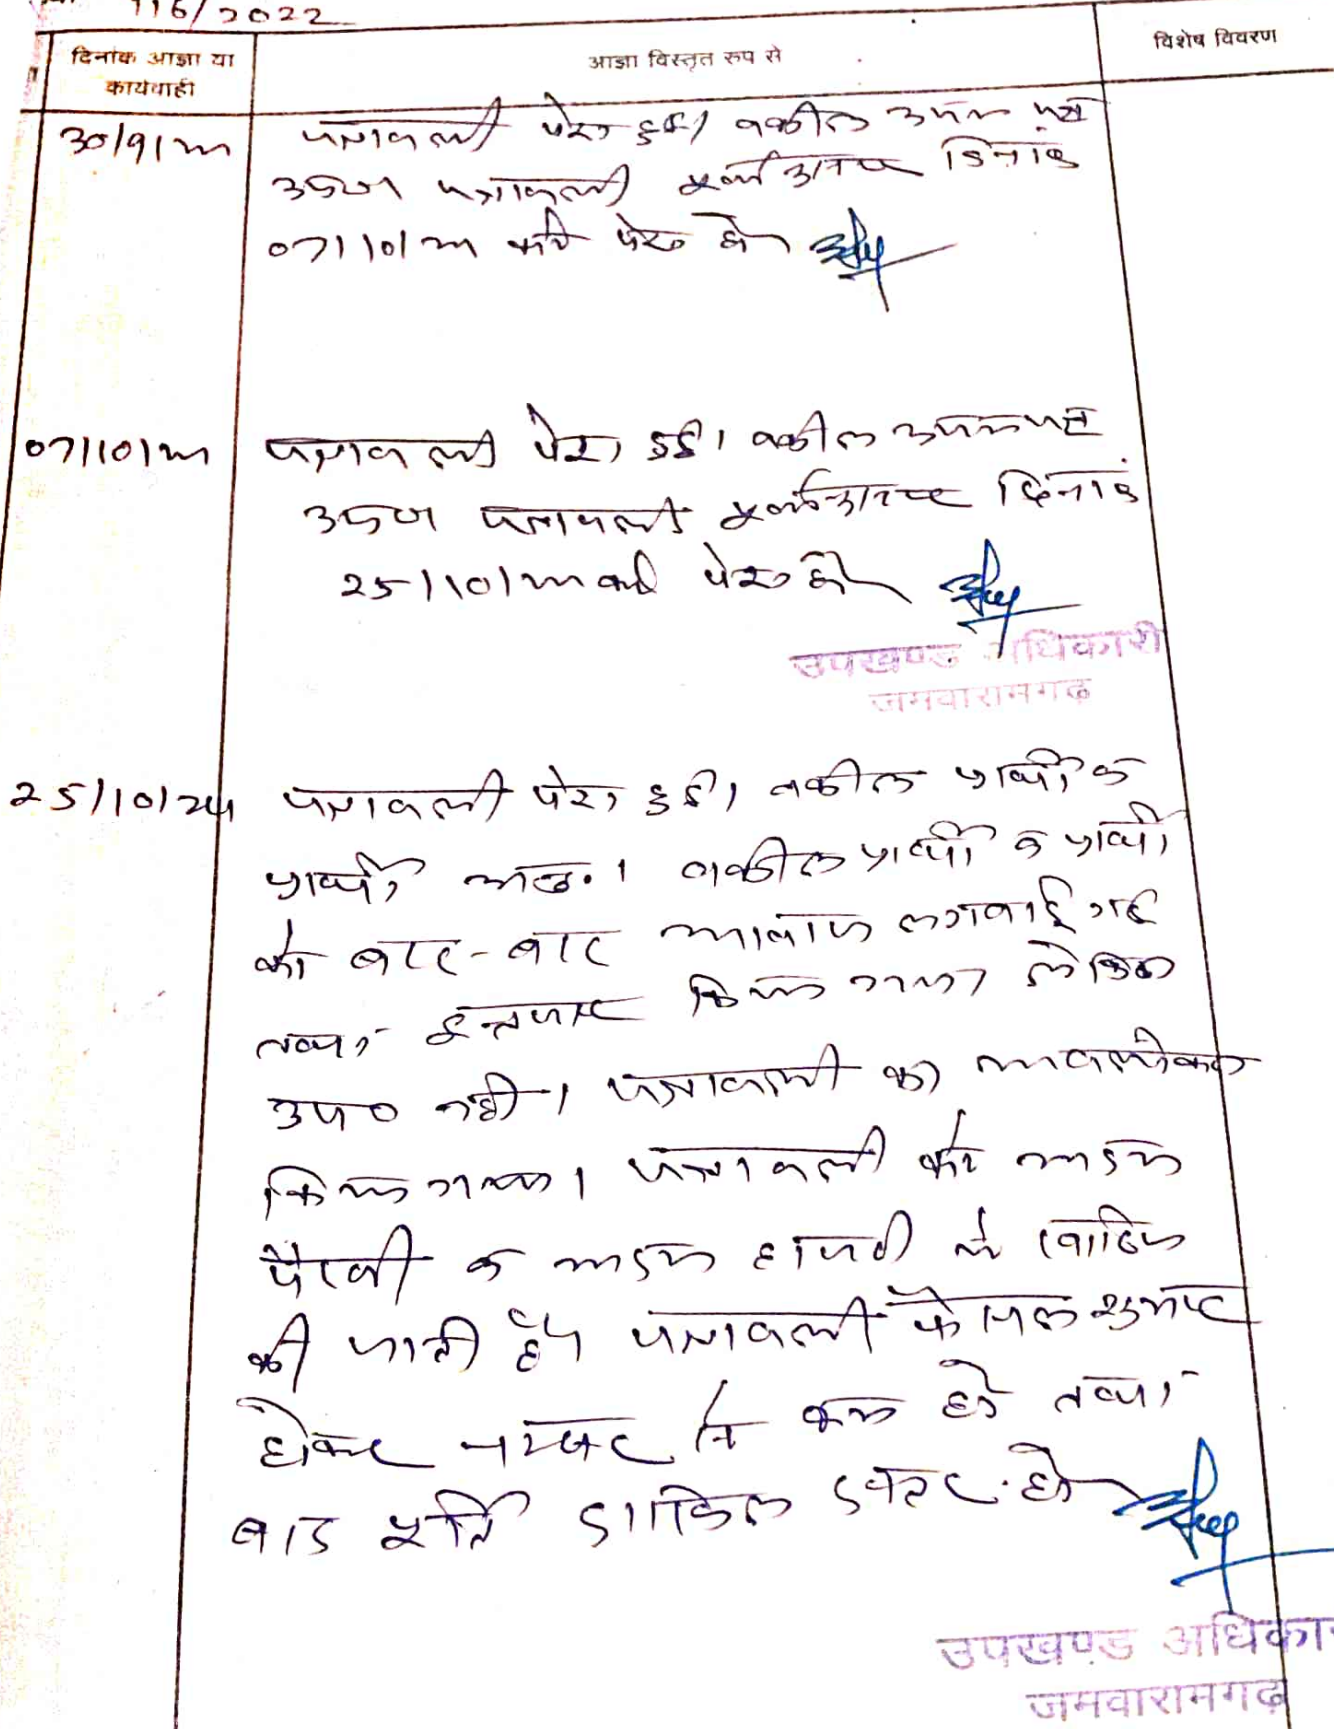 116/2022
दिनांक आज्ञा या
कार्यवाही
आज्ञा विस्तृत रूप से
विशेष विवरण
30/9/24 पत्रावली पेश हुई। वकील उभय पक्ष
उप0। पत्रावली पूर्व आदेश दिनांक
07/10/24 को पेश हो
07/10/24 पत्रावली पेश हुई। वकील उभयपक्ष
उप0। पत्रावली दिनांक
25/10/24 को पेश हो
उपखण्ड अधिकारी
जमवारामगढ़
25/10/24 पत्रावली पेश हुई। वकील प्रार्थी व
प्रार्थी अनु.। वकील प्रार्थी व प्रार्थी
को बार-बार आवाज लगवाई गई
तथा इन्तजार किया गया लेकिन
उप0 नहीं। पत्रावली का अवलोकन
किया गया। पत्रावली को अदम
पैरवी व अदम हाजरी में खारिज
की जाती है। पत्रावली फैसल शुमार
होकर नम्बर से कम हो तथा
बाद पूर्ति दाखिल दफ्तर हो
उपखण्ड अधिकार
जमवारामगढ़